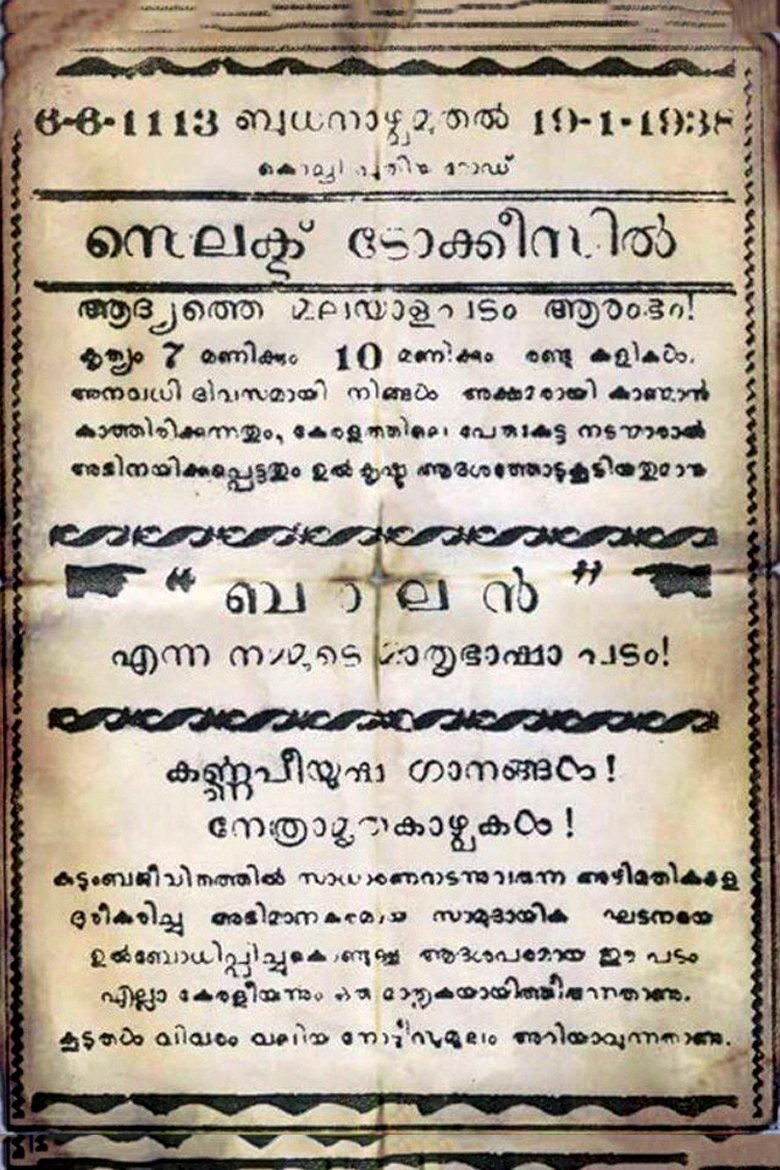 6-6-1113 ബുധനാഴ്ചമുതൽ 19-1-1938
കൊച്ചി പുതിയ റോഡ്
സെലക്ട് ടോക്കീസിൽ
ആദ്യത്തെ മലയാളപടം ആരംഭം!
കൃത്യം 7 മണിക്കും 10 മണിക്കും രണ്ടു കളികൾ.
അനവധി ദിവസമായി നിങ്ങൾ അക്ഷമരായി കാണ്മാൻ
കാത്തിരിക്കുന്നതും, കേരളത്തിലെ പേരുകേട്ട നടന്മാരാൽ
അഭിനയിക്കപ്പെട്ടതും ഉൽകൃഷ്ട ആദർശത്തോടുകൂടിയതുമായ
“ബാലൻ”
എന്ന നമ്മുടെ മാതൃഭാഷാ പടം!
കർണ്ണപീയുഷ ഗാനങ്ങൾ!
നേത്രാമൃതകാഴ്ചകൾ!
കുടുംബജീവിതത്തിൽ സാധാരണനടന്നുവരുന്ന അഴിമതികളെ
ദൂരീകരിച്ചു അഭിമാനകരമായ സാമുദായിക ഘടനയെ
ഉൽബോധിപ്പിച്ചുകൊണ്ടുള്ള ആദർശപരമായ ഈ പടം
എല്ലാ കേരളീയനും ഒരു മാതൃകയായിത്തീരുന്നതാണു.
കൂടുതൽ വിവരം വലിയ നോട്ടീസുമൂലം അറിയാവുന്നതാണു.